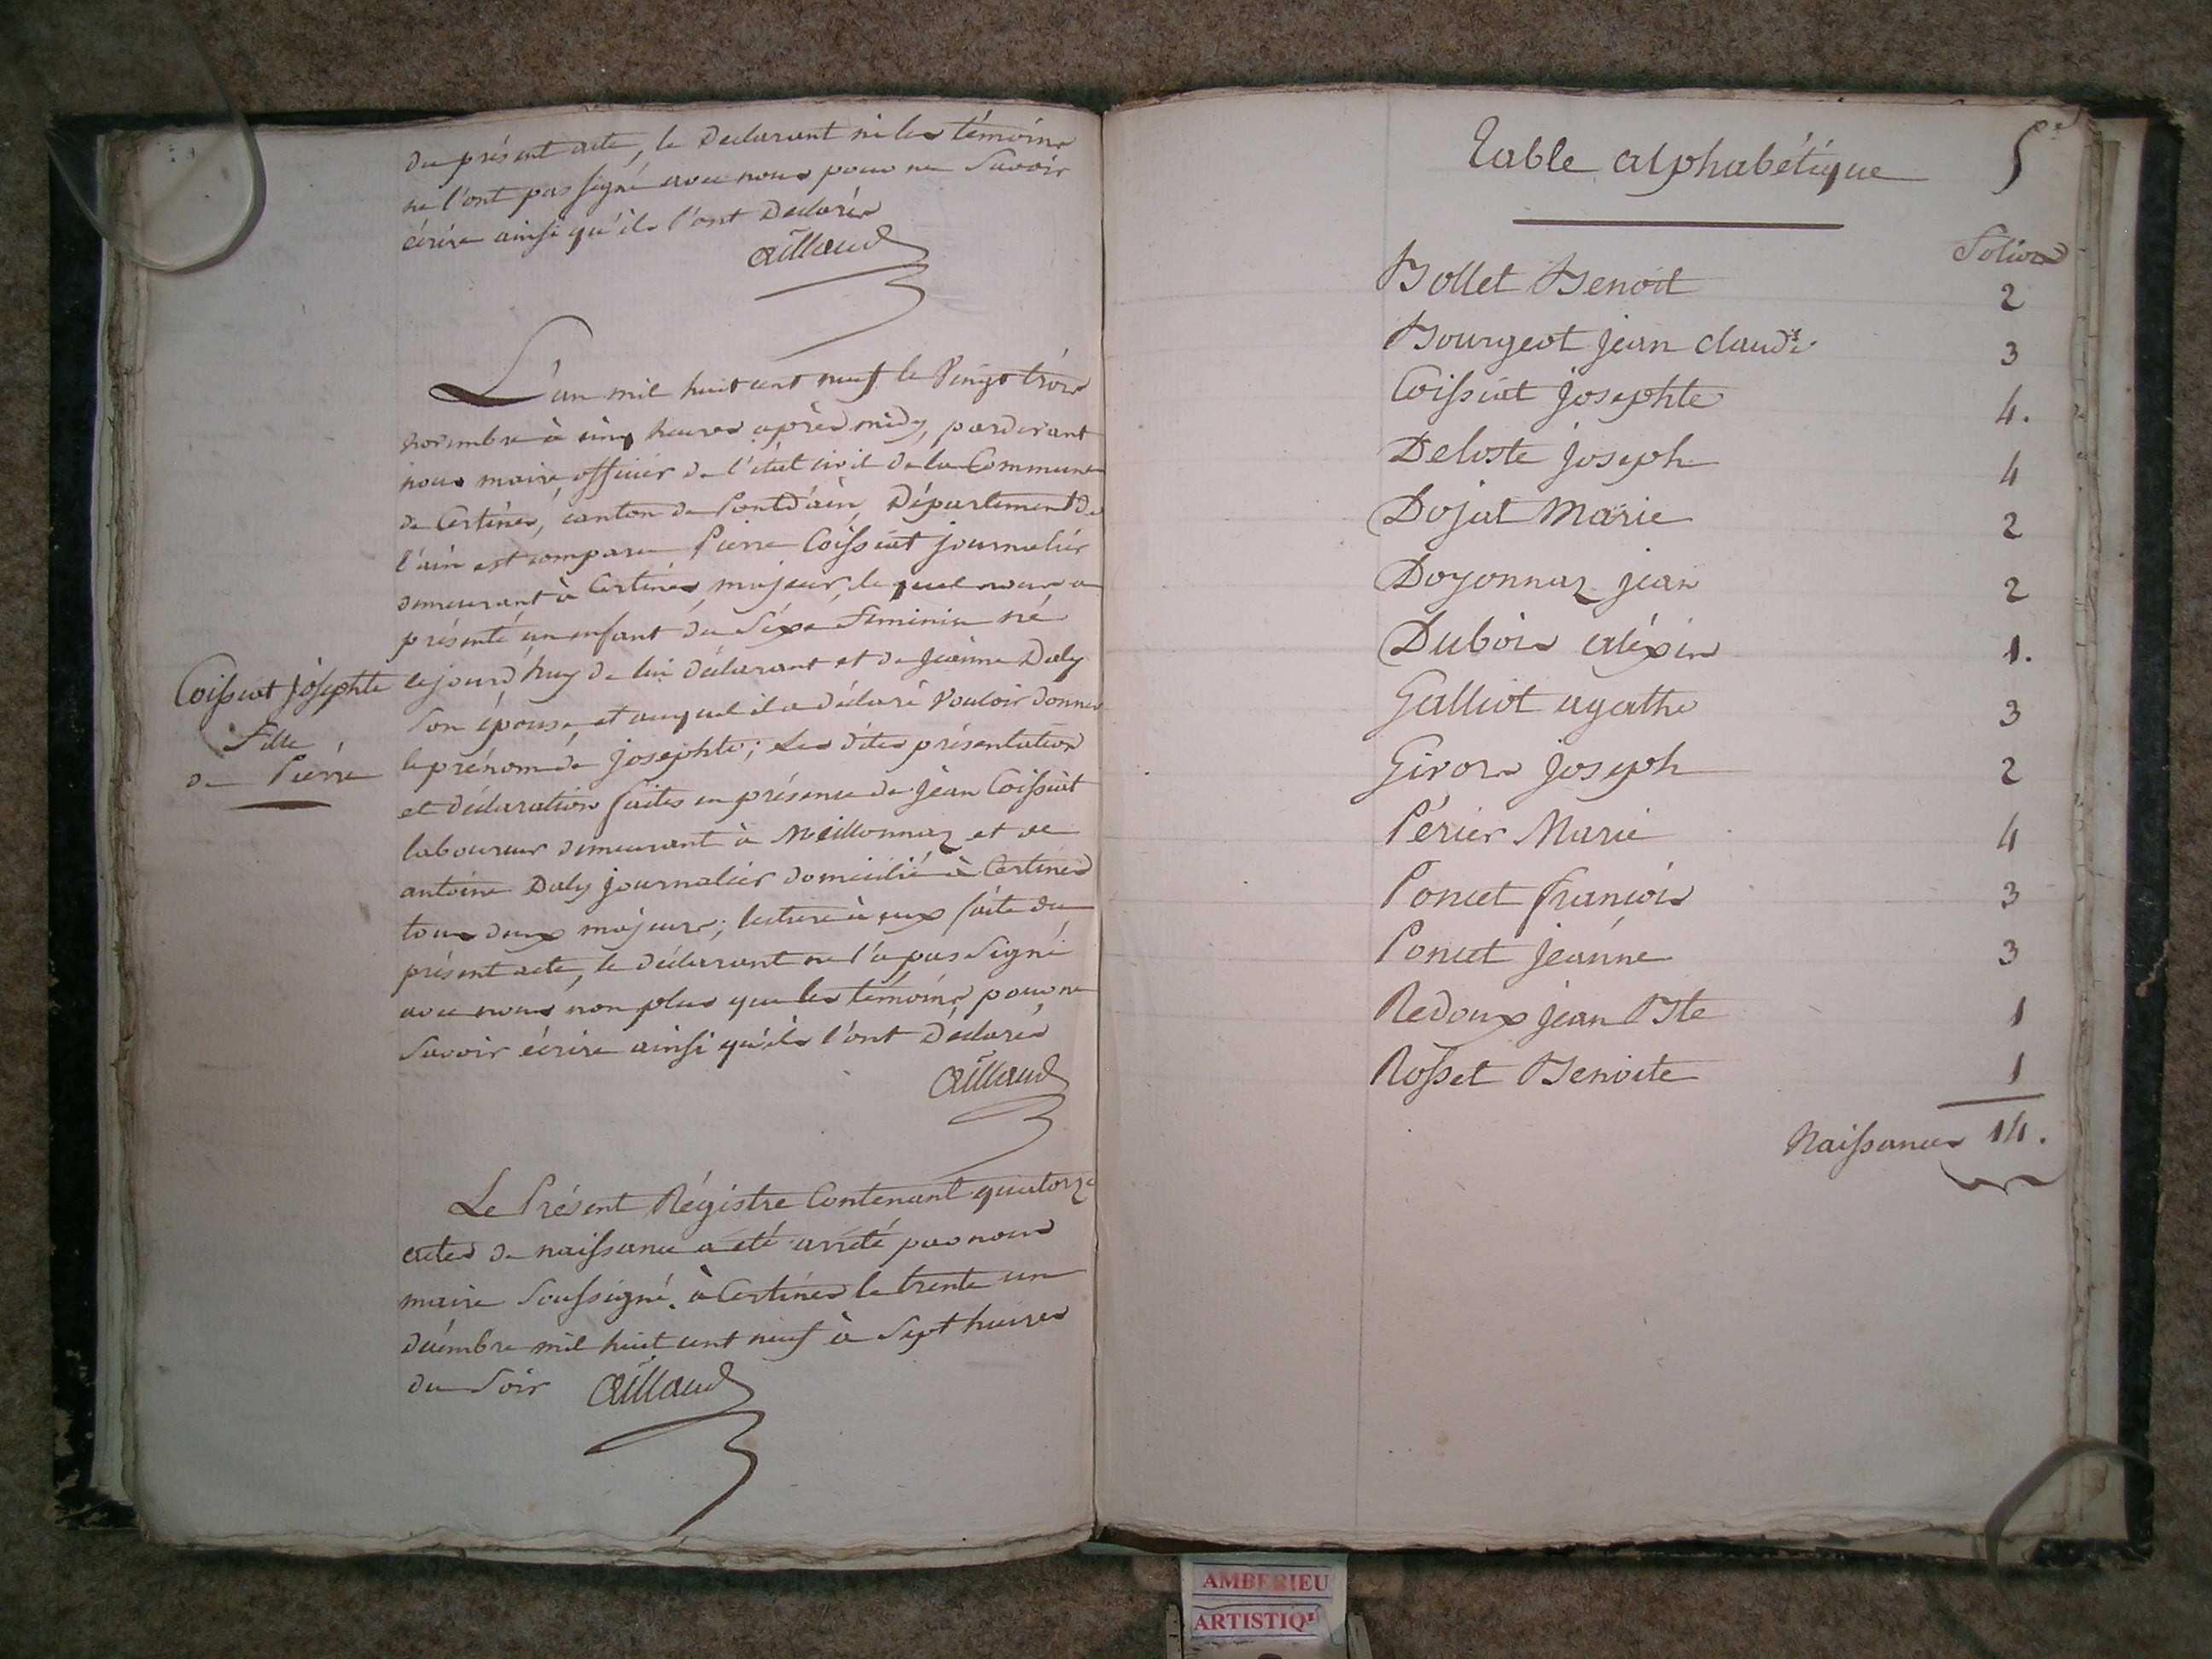 du présent acte, le Declarant ni les témoins
ne l'ont pas signé avec nous pour ne Savoir
écrire ainsi qu'ils l'ont Declarés
aillaud
L'an mil huit cent neuf le Vingt trois
novembre à cinq heures après midy, pardevant
nous maire, officier de l'état civil de la Commune
de Certines, canton de Pontdain, Département de
l'ain est comparu Pierre Coissiat journalier
demeurant à Certines, majeur, le quel nous a
présenté un enfant du Séxe Féminin né
Coissiat josephte
fille
de Pierre
cejourd'huy de lui déclarant et de jeanne Daly
Son épouse, et auquel il a déclaré Vouloir donner
le prénom de josephte; Les dites présentation
et déclaration faites en présence de jean Coissiat
laboureur demeurant à Meillonnaz et de
antoine Daly journalier domicilié à Certines
tous deux majeurs; lecture à eux faite du
présent acte, le déclarant ne l'a pas Signé
avec nous non plus que les témoins pour ne
Savoir écrire ainsi qu'ils l'ont Déclarés
aillaud
Le Présent Régistre Contenant quatorze
actes de naissance a été arrêté par nous
maire Soussigné. à Certines le trente un
décembre mil huit cent neuf à Sept heures
du Soir aillaud
Table alphabétique 5
Folios
Bollet Benoit 2
Bourgeot jean claude 3
Coissiat josephte 4.
Deloste joseph 4
Dojat Marie 2
Doyonnaz jean 2
Dubois aléxis 1.
Galliot agathe 3
Giron joseph 2
Périer Marie 4
Poncet françois 3
Poncet jeanne 3
Redoux jean Bte 1
Rosset Benoite 1
Naissances 14.
AMBERIEU
ARTISTIQ